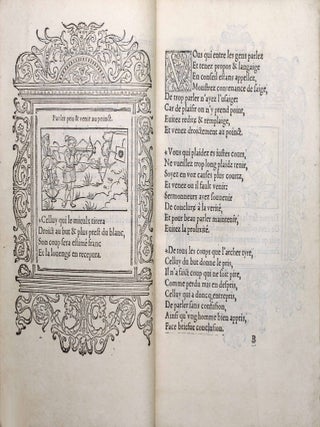 Parler peu & venir au poinct.
Celluy qui le mieulx tirera
Droict au but & plus prest du blanc,
Son coup sera estimé franc
Et la louenge en recepura.
VOus qui entre les gens parlez
Et tenez propos & langaige
En conseil estans appellez,
Monstrez contenance de saige,
De trop parler n'ayez l'usaige:
Car de plaisir on n'y prend point,
Euitez redite & remplaige,
Et venez droictement au poinct.
Vous qui plaidez es iustes cours,
Ne vueillez trop long plaidé tenir,
Soyez en voz causes plus courtz,
Et venez ou il fault venir:
Sermonneurs ayez souuenir
De conclurre à la verité,
Et pour beau parler maintenir,
Euitez la prolixité.
De tous les coups que l'archer tyre,
Celluy du but donne le pris,
Il n'a faict coup qui ne soit pire,
Comme perdu mis en despris,
Celluy qui a doncq entrepris,
De parler sans confusion,
Ainsi qu'vng homme bien appris,
Face briefue conclusion.
B